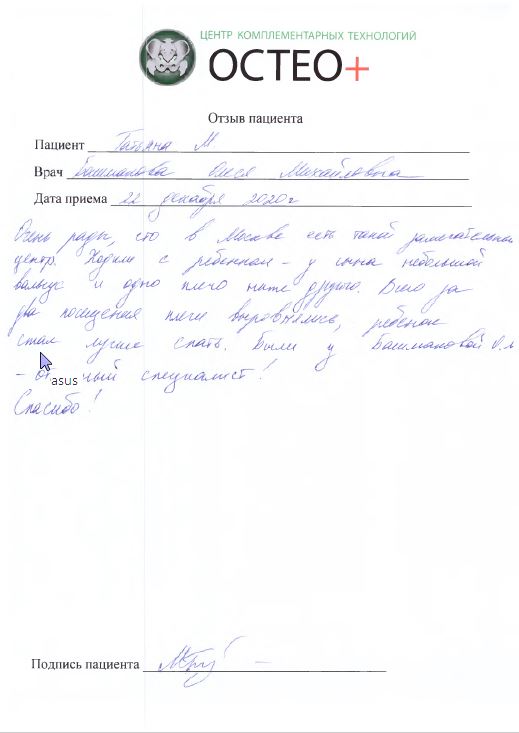 ЦЕНТР КОМПЛЕМЕНТАРНЫХ ТЕХНОЛОГИЙ
ОСТЕО+
Отзыв пациента
Пациент Татьяна М
Врач Башмакова Олеся Михайловна
Дата приема 22 декабря 2020г
Очень рады, что в Москве есть такой замечательный
центр. Ходим с ребенком - у сына небольшой
вальгус и одно плечо ниже другого. Всего за
два посещения плечи выровнялись, ребенок
стал лучше спать. Были у Башмаковой О.М
- специалист!
asus
Спасибо!
Подпись пациента